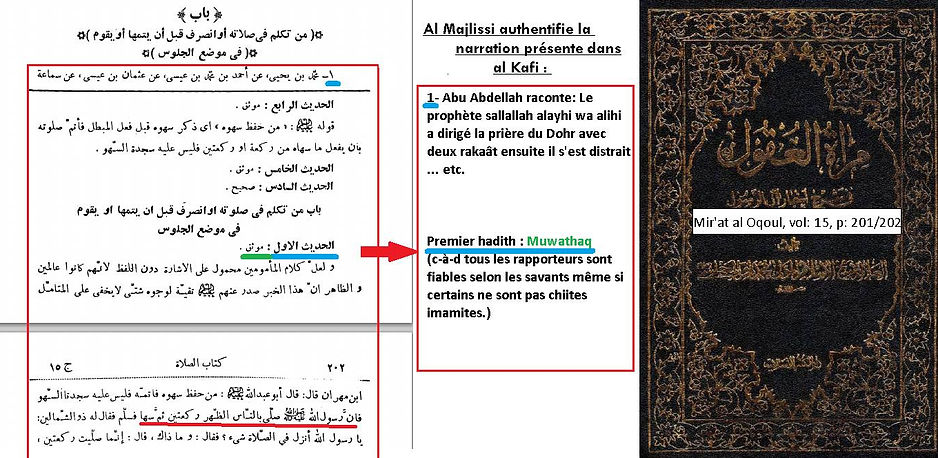 ﴿ باب ﴾
﴿( من تكلم فى صلاته أو انصرف قبل أن يتمها أو يقوم )﴾
﴿( فى موضع الجلوس )﴾
١ـ محمد بن يحيى، عن أحمد بن محمد بن عيسى، عن عثمان بن عيسى، عن سماعة
الحديث الرابع : موثق .
قوله ﷺ : « من حفظ سهوه » اى ذكر سهوه قبل فعل المبطل فأتم صلوته
بأن يفعل ما سهاه من ركعة او ركعتين فليس عليه سجدة السّهو .
الحديث الخامس : موثق .
الحديث السادس : صحيح .
باب من تكلم فى صلوته او انصرف قبل ان يتمها او يقوم
فى موضع الجلوس
الحديث الاول : موثق .
و لعل كلام المأمومين محمول على الاشارة دون اللفظ لانهم كانوا عالمين
و الظاهر ان هذا الخبر صدر عنهم تقيّة لوجوه شتّى لايخفى على المتامل
٢٠٢ كتاب الصلاة ج ١٥
ابن مهران قال: قال أبو عبدالله : من حفظ سهوه فأتمّه فليس عليه سجدتا السّهو
فانَّ رسول الله ﷺ صلّى بالنّاس الظهر ركعتين ثمَّ سها فسلّم فقال له ذو الشّمالين:
يا رسول الله أنزل في الصّلاة شيء؟ فقال: و ما ذاك، قال: إنّما صلّيت ركعتين ،
Al Majlissi authentifie la
narration présente dans
al Kafi :
1- Abu Abdellah raconte: Le
prophète sallallah alayhi wa alihi
a dirigé la prière du Dohr avec
deux rakaât ensuite il s'est distrait
... etc.
Premier hadith : Muwathaq
(c-à-d tous les rapporteurs sont
fiables selon les savants même si
certains ne sont pas chiites
imamites.)
مرآة العقول
في شرح أخبار آل الرسول
Mir'at al Oqoul, vol: 15, p: 201/202